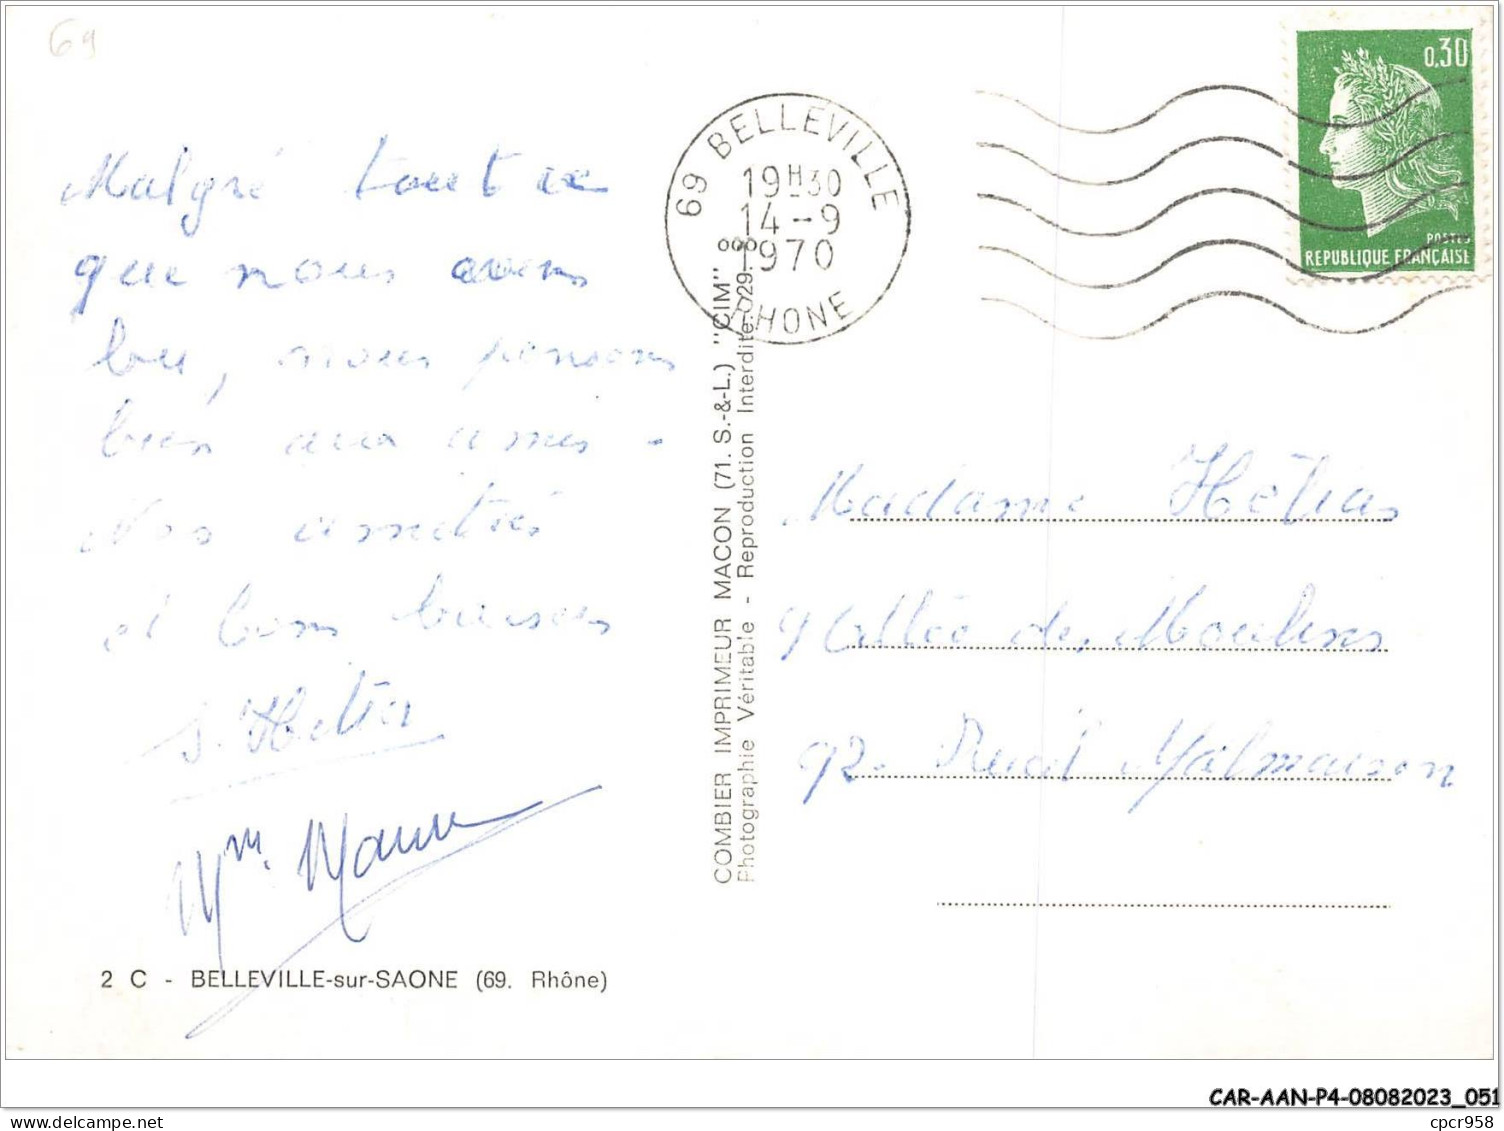 69
Malgré tout ce
que nous avons
bu, nous pensons
bien aux amis -
Nos amitiés
et bons baisers
S. Hélias
Mm.
2 C - BELLEVILLE-sur-SAONE (69. Rhône)
COMBIER IMPRIMEUR MACON (71. S.-&-L.) "CIM"
Photographie Véritable - Reproduction Interdite.
69 BELLEVILLE
19H30
14-9
1970
RHONE
0,30
POSTES
REPUBLIQUE FRANÇAISE
Madame Hélias
9 Allée des Moulins
92. Rueil Malmaison
CAR-AAN-P4-08082023_051
cpcr958